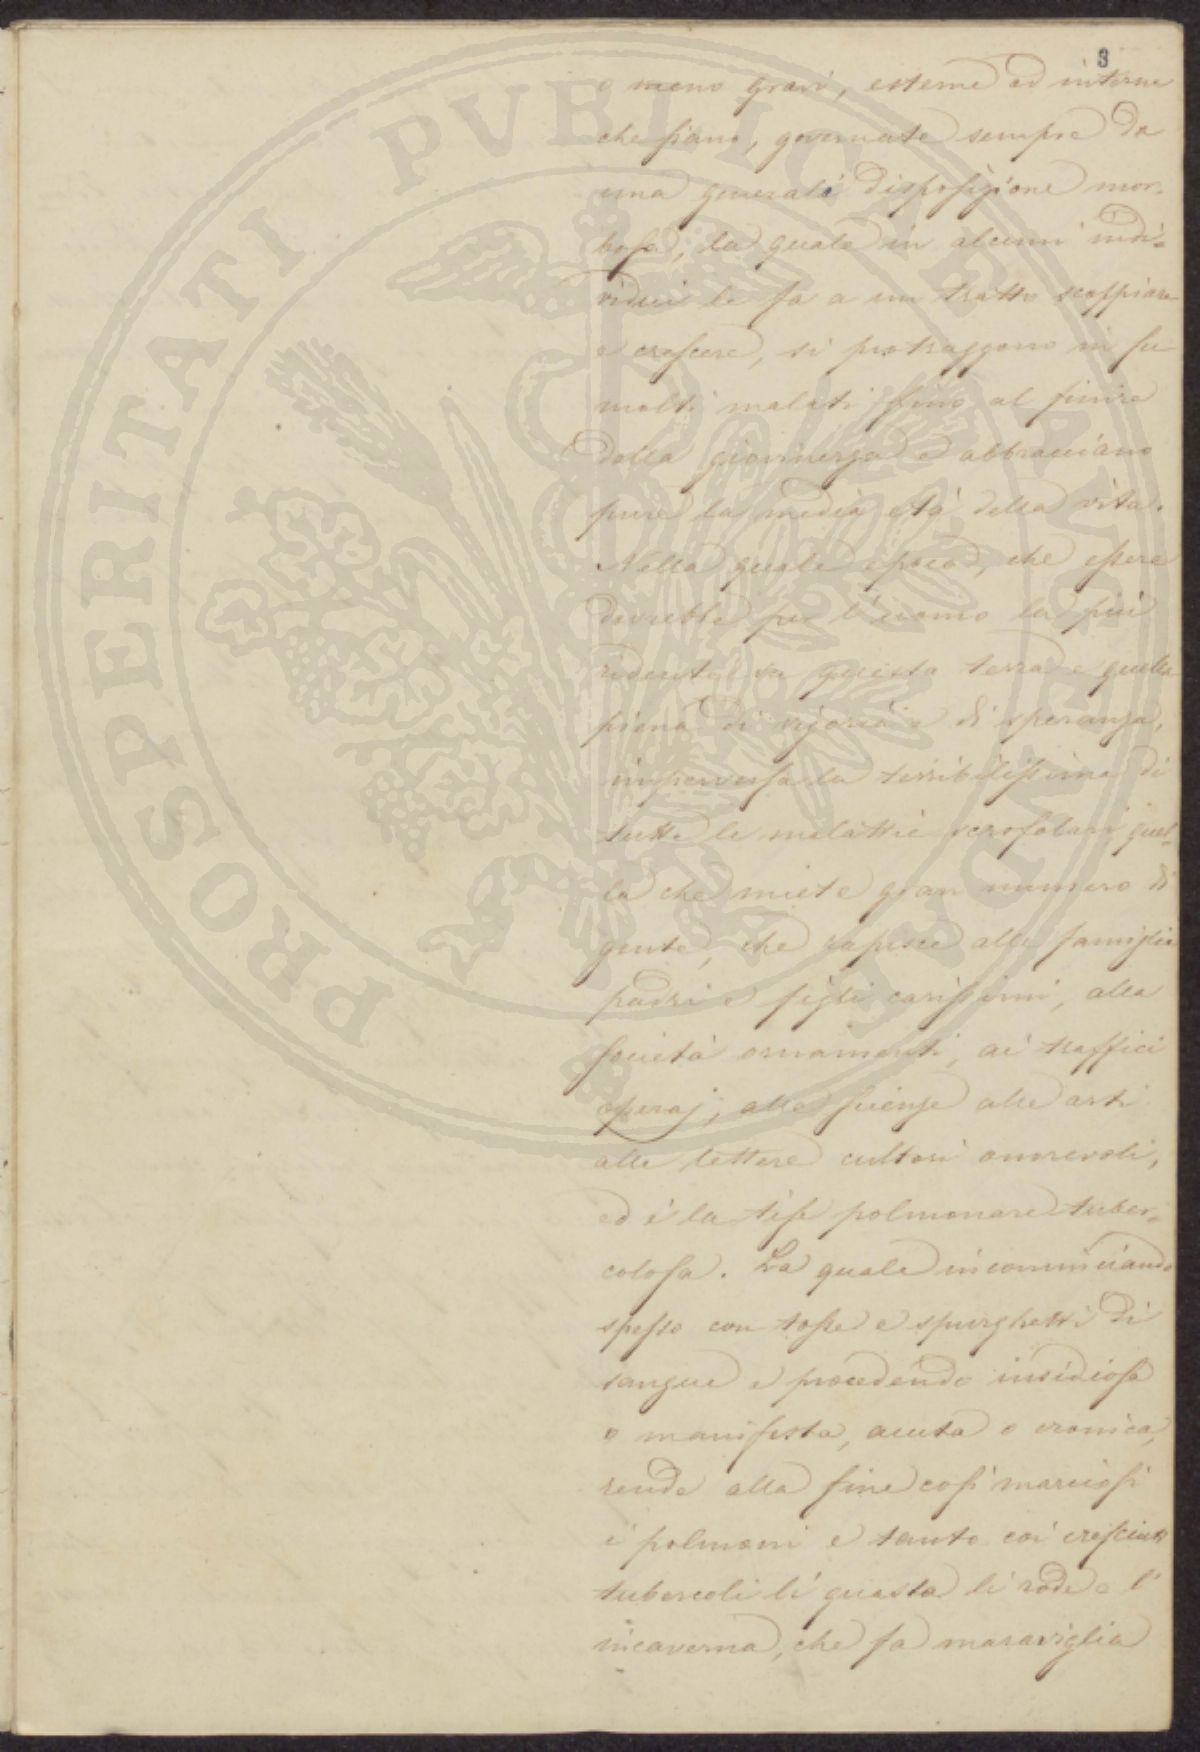 3
o meno gravi, esterne ed interne
che siano, governate sempre da
una generale disposizione mor-
bosa, la quale in alcuni indi-
vidui le fa a un tratto scoppiare
e crescere, si protraggono in
molti malati fino al finire
della giovinezza ed abbracciano
pure la media età della vita.
Nella quale epoca, che essere
dovrebbe per l'uomo la più
ridente su questa terra e quella
piena di vigoria e di speranza,
imperversa la terribilissima di
tutte le malattie scrofolari quel-
la che miete gran numero di
gente, che rapisce alle famiglie
padri e figli carissimi, alla
società ornamenti, ai traffici
operaj, alle scienze alle arti
alle lettere cultori onorevoli,
ed è la tise polmonare tuber-
colosa. La quale incominciando
spesso con tosse e spurghetti di
sangue e procedendo insidiosa
o manifesta, acuta o cronica,
rende alla fine così marciosi
i polmoni e tanto coi cresciuti
tubercoli li guasta li rode e l'
incaverna, che fa maraviglia
PROSPERITATI PVBLICAE AVGENDAE